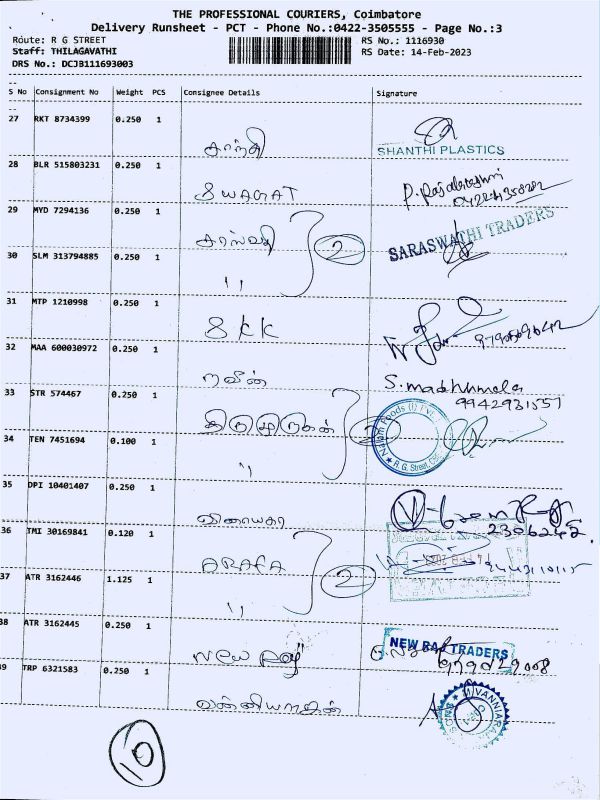 THE PROFESSIONAL COURIERS, Coimbatore
Delivery Runsheet - PCT - Phone No.:0422-3505555 - Page No.:3
Route: R G STREET
RS No.: 1116930
Staff: THILAGAVATHI
RS Date: 14-Feb-2023
DRS No.: DCJB111693003
S No Consignment No Weight PCS Consignee Details Signature
27 RKT 8734399 0.250 1
சாந்தி
SHANTHI PLASTICS
28 BLR 515803231 0.250 1
SWAGAT
P. Rajalakshmi
29 MYD 7294136 0.250 1
2
SARASWATHI TRADERS
30 SLM 313794885 0.250 1
"
31 MTP 1210998 0.250 1
SKK
32 MAA 600030972 0.250 1
நவீன்
S. madhumala
9942931557
33 STR 574467 0.250 1
திருமுருகன்
2
Foods (I) Pvt
R. G. Street, CBE
34 TEN 7451694 0.100 1
"
35 DPI 10401407 0.250 1
விநாயகா
36 TMI 30169841 0.120 1
ARAFA
2
37 ATR 3162446 1.125 1
"
38 ATR 3162445 0.250 1
New Raj
NEW RAJ TRADERS
39 TRP 6321583 0.250 1
வன்னியராஜன்
10